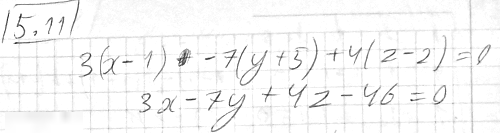 5.11
3(x-1) -7(y+5)+4(z-2)=0
3x-7y+4z-46=0